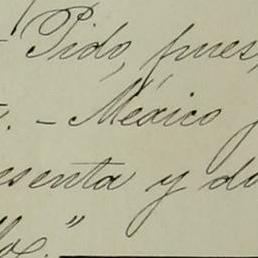 - Pido, pues,
. - México
esenta y do